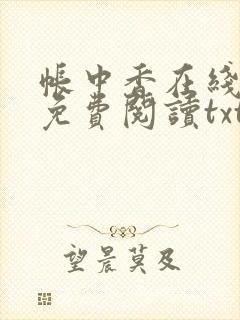 帳中香在綫
免費閱讀txt
望晨莫及